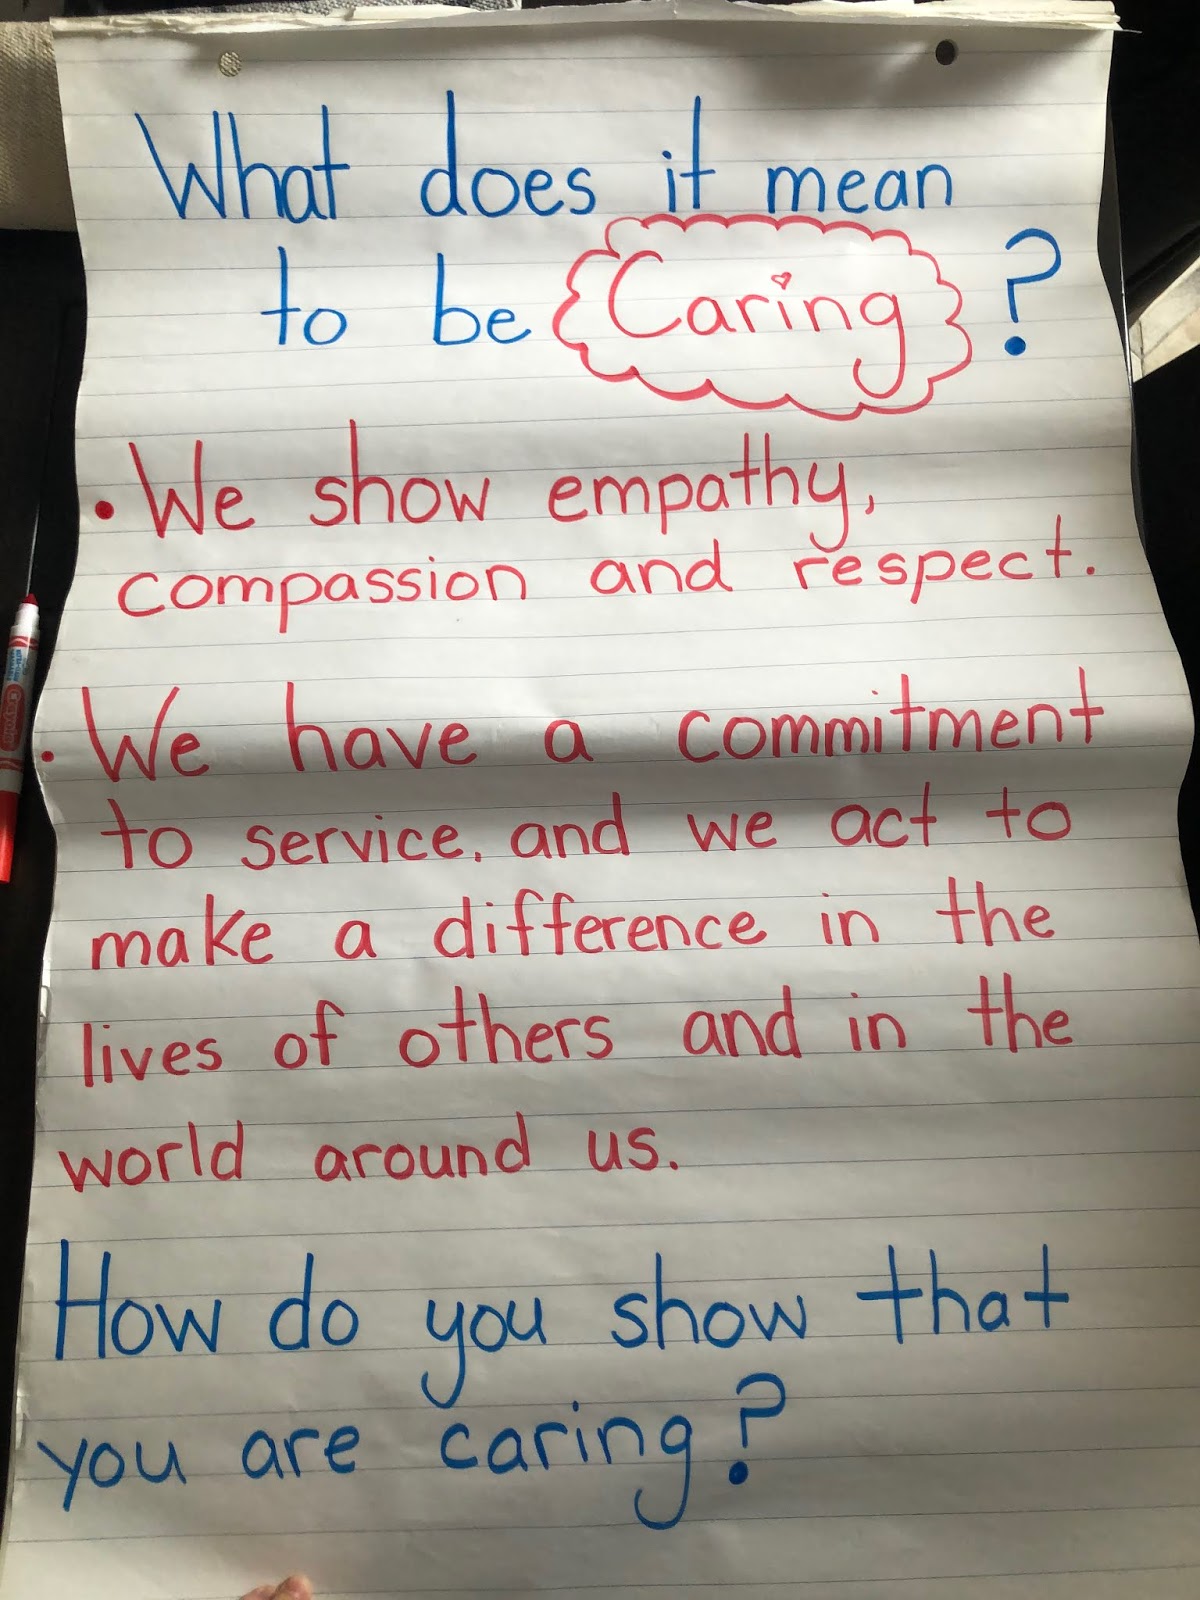 What does it mean
to be Caring ?
• We show empathy,
compassion and respect.
• We have a commitment
to service, and we act to
make a difference in the
lives of others and in the
world around us.
How do you show that
you are caring?
Crayola